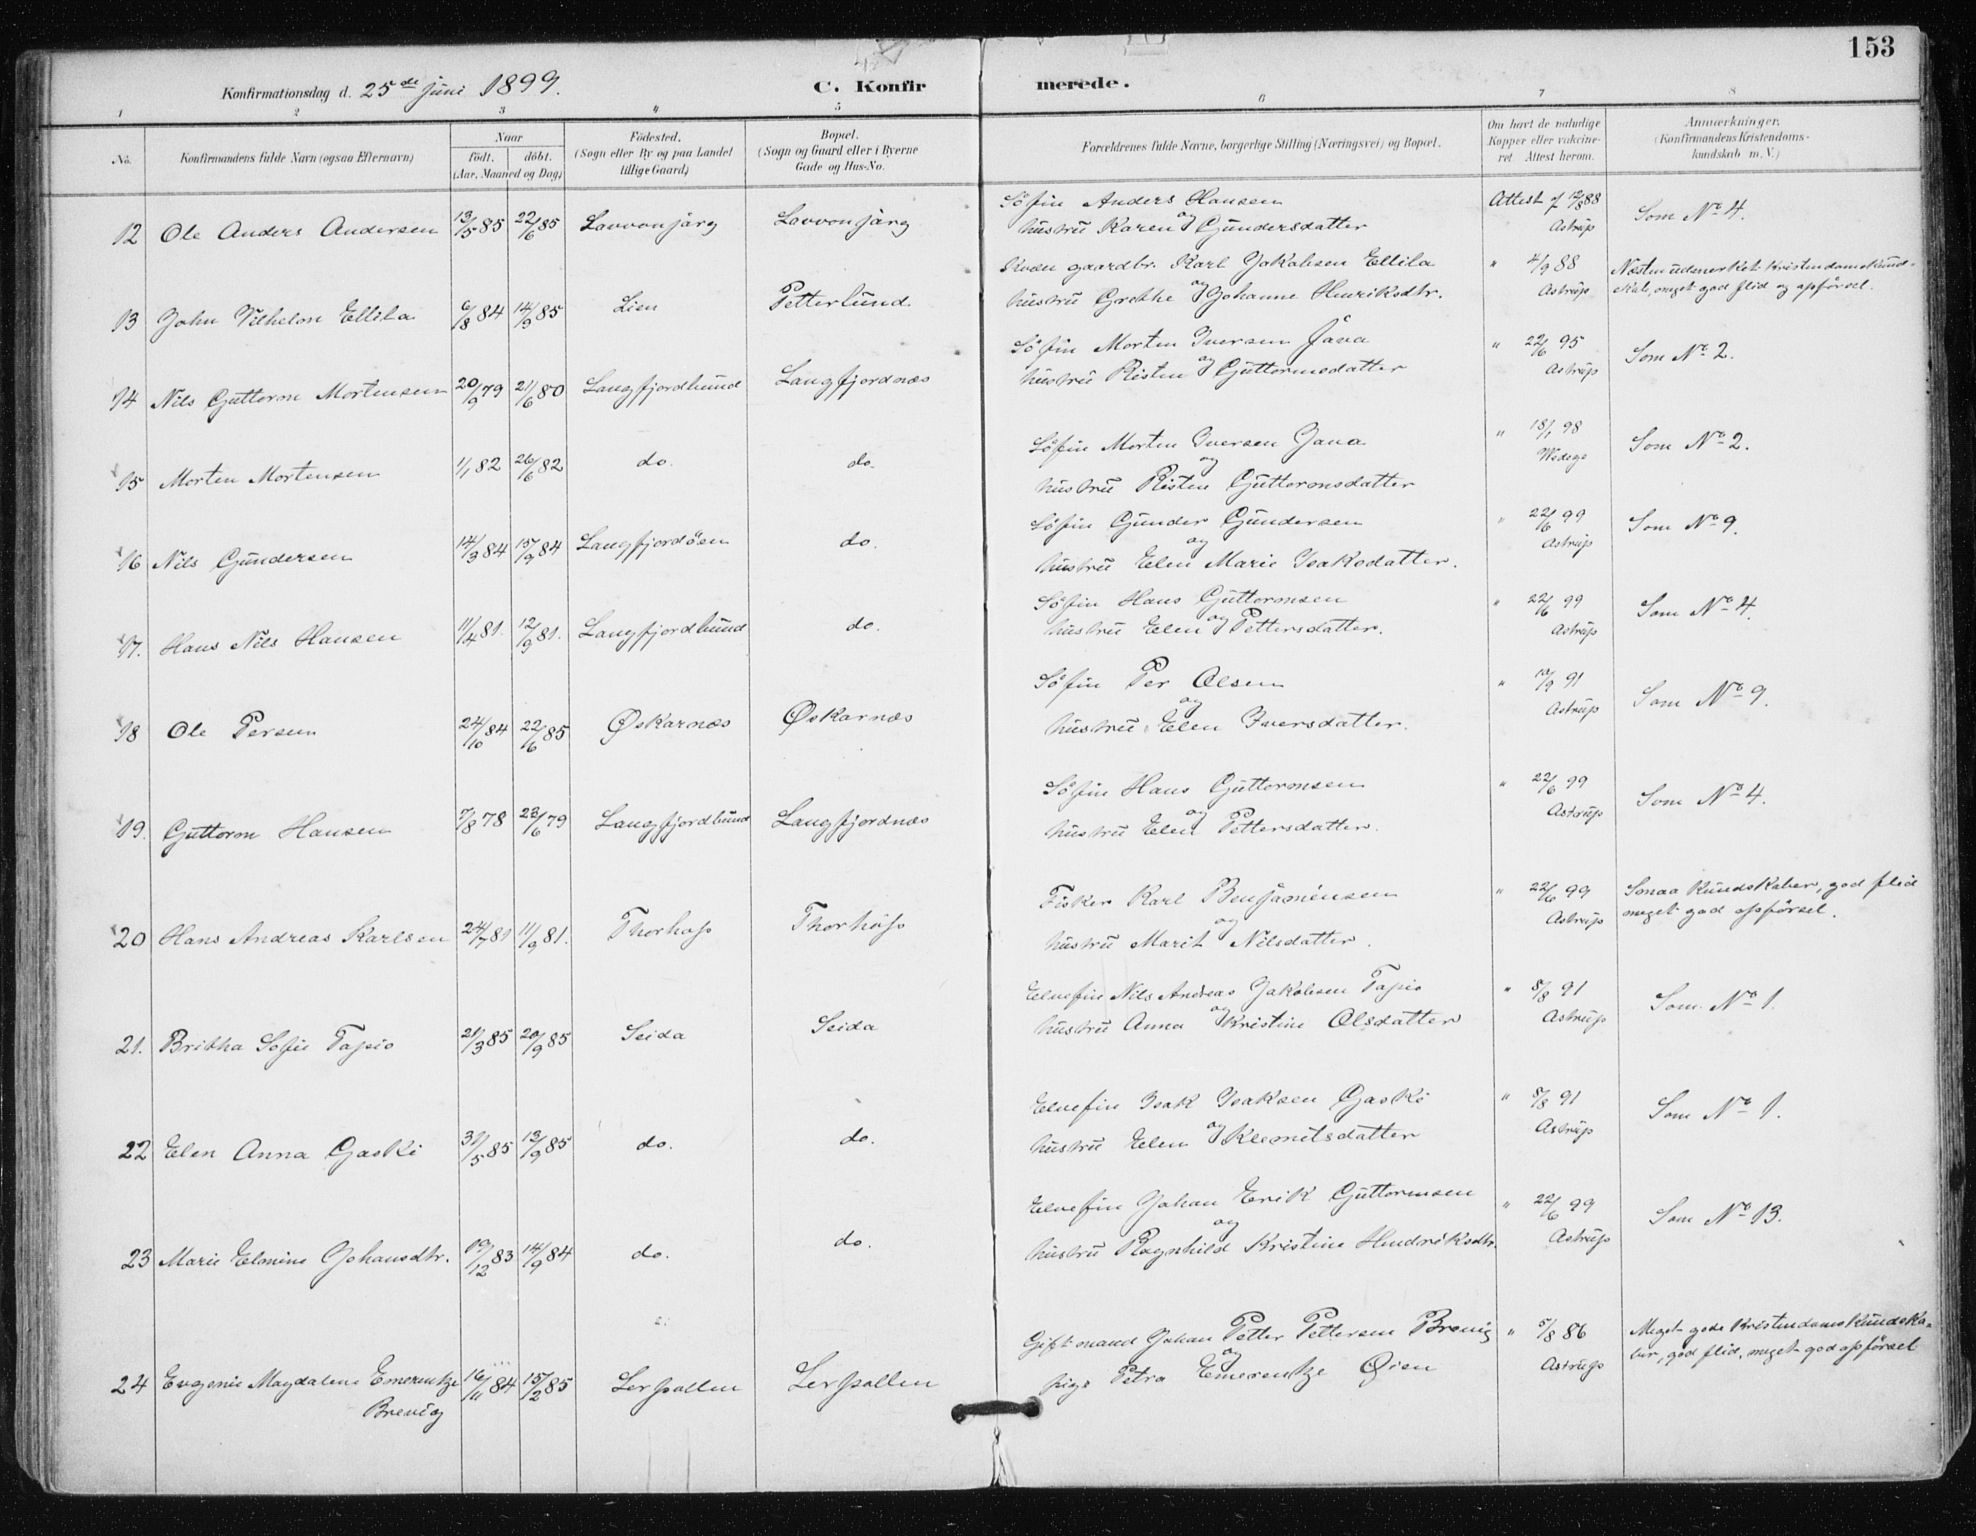 153
Konfirmationsdag d. 25de juni 1899.
C. Konfirmerede.
1 2 3 4 5 6 7 8
No.
Konfirmandens fulde Navn (ogsaa Efternavn)
Naar
født. døbt.
(Aar, Maaned og Dag)
Födested.
(Sogn eller By og paa Landet
tillige Gaard)
Bopæl.
(Sogn og Gaard eller i Byerne
Gade og Hus-No.
Forældrenes fulde Navne, borgerlige Stilling (Næringsvei) og Bopæl.
Om havt de naturlige
Kopper eller vakcine-
ret Attest herom.
Anmærkninger.
(Konfirmandens Kristendoms-
kundskab m. V.)
12 Ole Anders Andersen 13/5 85 22/6 85 Lavvonjarg Lavvonjarg
Söfin Anders Hansen
og
hustru Karen Gundersdatter
Attest f 12/8 88
Astrup
Som No 4.
13 John Vilhelm Ellila 6/8 84 14/9 85 Lien Petterlund.
Kvæn gaardbr. Karl Jakobsen Ellila
og
hustru Grethe Johanne Henriksdtr.
" 4/9 88
Astrup
Næsten udmerket Kristendomskund-
skab, meget god flid og opförsel.
14 Nils Guttorm Mortensen 20/9 79 21/6 80 Langfjordbund Langfjordnæs
Söfin Morten Iversen Java
og
hustru Risten Guttormsdatter
" 22/6 95
Astrup
Som No 2.
15 Morten Mortensen 1/1 82 26/6 82 do. do.
Söfin Morten Iversen Java
og
hustru Risten Guttormsdatter
" 18/1 98
Wedege
Som No 2.
16 Nils Gundersen 14/3 84 15/9 84 Langfjordösen do.
Söfin Gunder Gundersen
og
hustru Elen Marie Isaksdatter.
" 22/6 99
Astrup
Som No 9.
17. Hans Nils Hansen 11/4 81. 12/9 81. Langfjordbund do.
Söfin Hans Guttormsen
og
hustru Elen Pettersdatter.
" 22/6 99
Astrup
Som No 4.
18 Ole Persen 24/10 84 22/6 85 Øskarnæs Øskarnæs
Söfin Per Olsen
og
hustru Elen Iversdatter.
" 10/9 91
Astrup
Som No 9.
19. Guttorm Hansen 7/8 78 23/6 79 Langfjordbund Langfjordnæs
Söfin Hans Guttormsen
og
hustru Elen Pettersdatter.
" 22/6 99
Astrup
Som No 4.
20 Hans Andreas Karlsen 24/7 81 11/9 81. Thorhop Thorhop
Fisker Karl Benjaminsen
og
hustru Marit Nilsdatter.
" 22/6 99
Astrup
Smaa Kundskaber, god flid
meget god opförsel.
21. Britha Sofie Tapio 21/3 85 20/9 85 Seida Seida
Elvefin Nils Andreas Jakobsen Tapio
og
hustru Anna Kristine Olsdatter
" 5/8 91
Astrup
Som No 1.
22 Elen Anna Gaski 31/5 85 13/9 85 do. do.
Elvefin Isak Isaksen Gaski
og
hustru Elen Klemitsdatter
" 5/8 91
Astrup
Som No 1.
23 Marie Elmine Johansdtr. 19/12 83 14/9 84 do. do.
Elvefin Johan Erik Guttormsen
og
hustru Ragnhild Kristine Hendriksdtr.
" 22/6 99
Astrup
Som No 13.
24 Evgenie Magdalene Emerentze
Brevig
16/11 84 15/2 85 Lerpollen Lerpollen
Gift mand Johan Petter Pettersen Brevig
og
pige Petra Emerentze Øien
" 5/8 86
Astrup
Meget gode Kristendomskundska-
ber, god flid, meget god opförsel